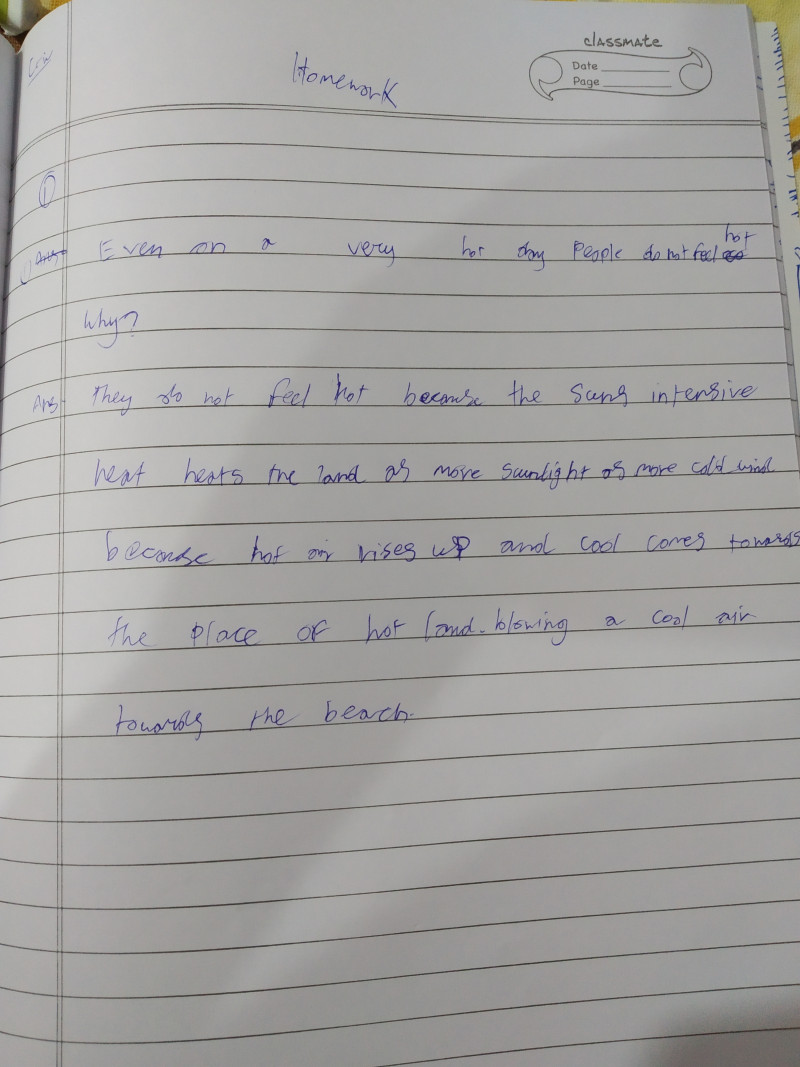 classmate
Date
Page
Homework
①
Even on a very hot day People do not feel hot
Why?
Ans- They do not feel hot because the Suns intensive
heat heats the land as more sunlight as more cold wind
because hot air rises up and cool comes towards
the place of hot land. blowing a cool air
towards the beach.